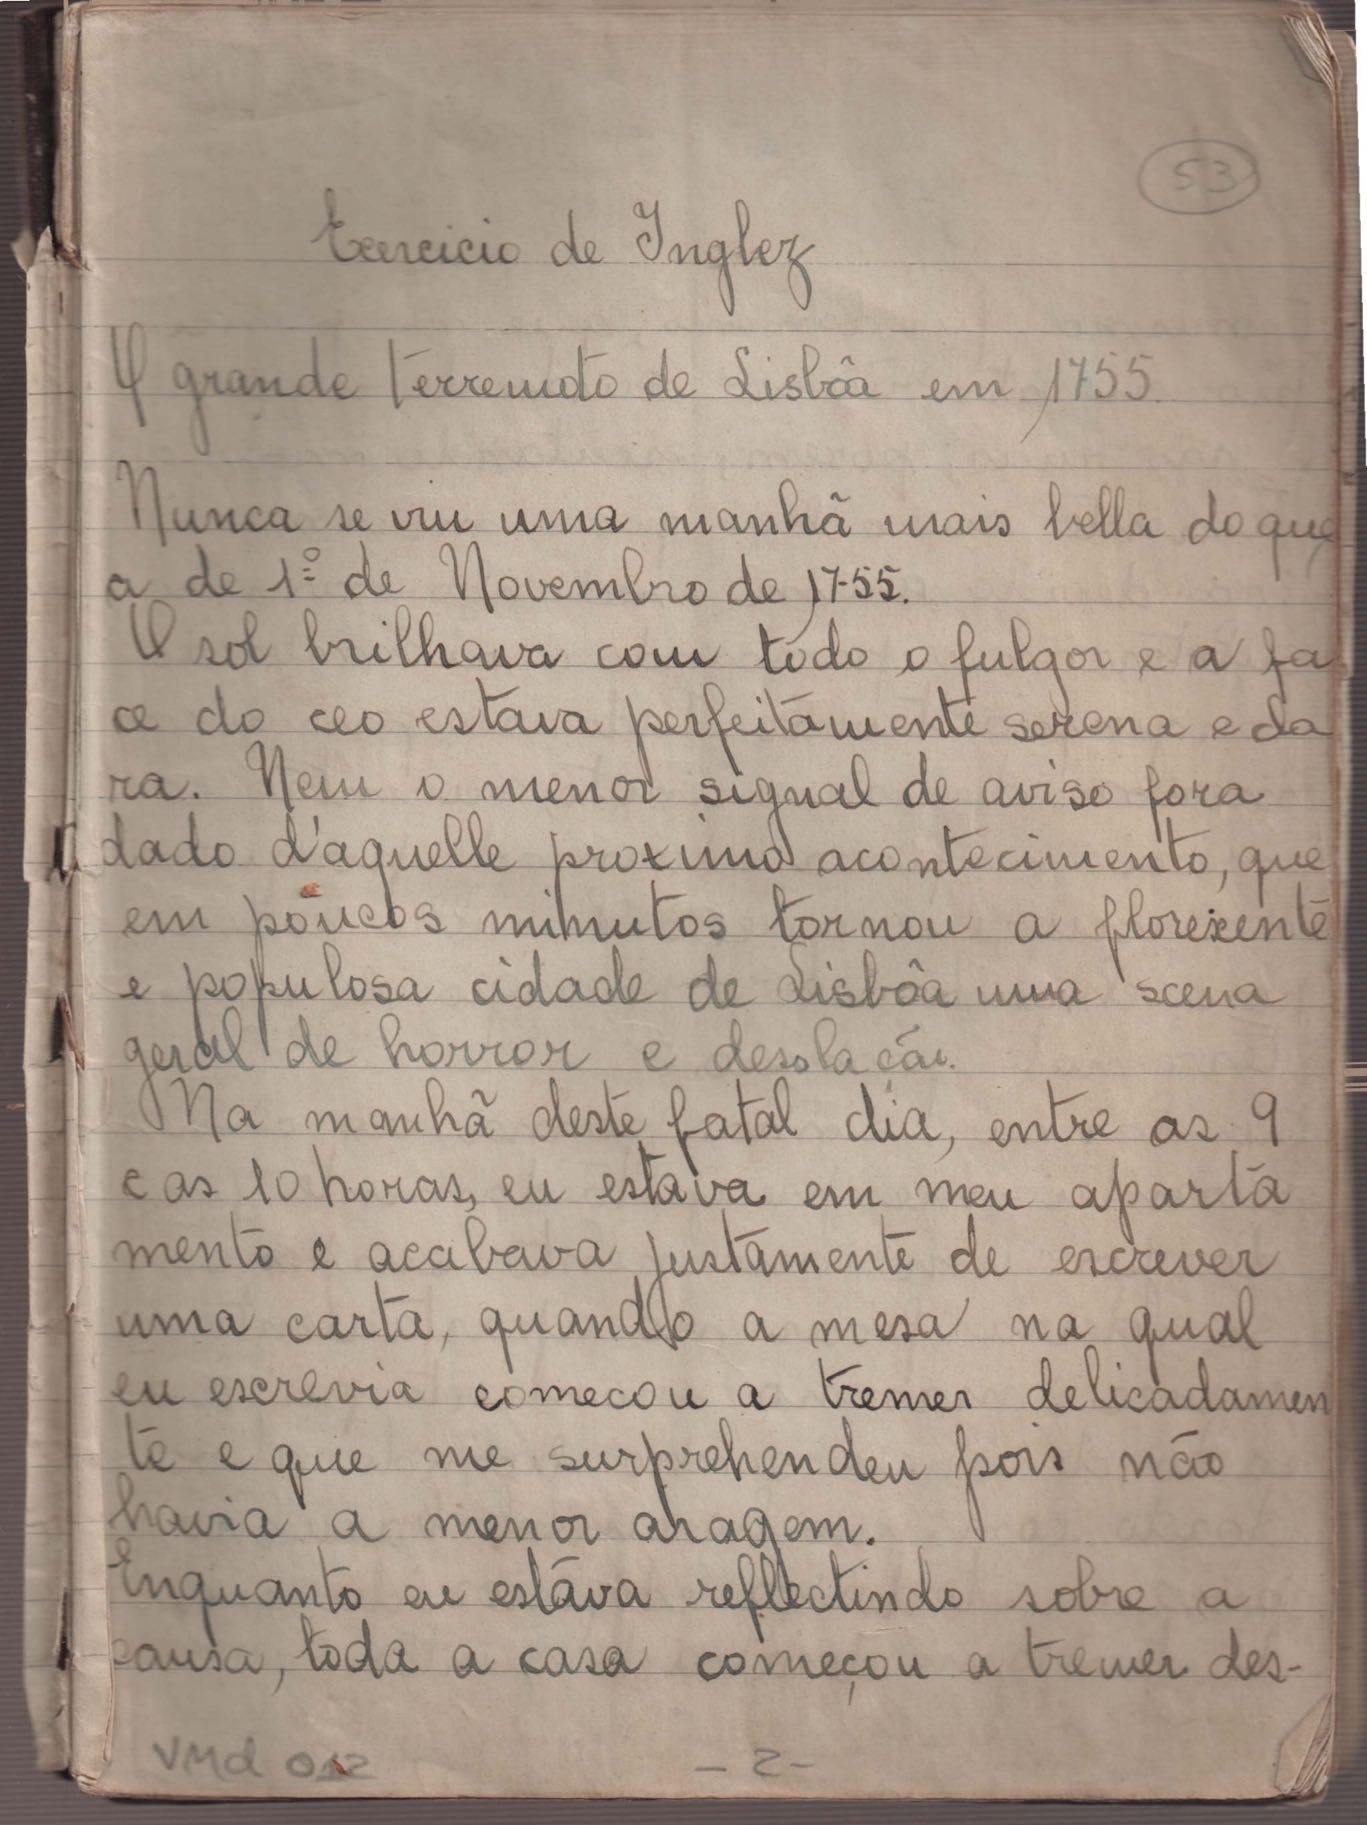 53
Exercicio de Inglez
O grande terremoto de Lisbôa em 1755.
Nunca se viu uma manhã mais bella do que
a de 1º de Novembro de 1755.
O sol brilhava com todo o fulgor e a fa
ce do ceo estava perfeitamente serena e cla
ra. Nem o menor signal de aviso fora
dado d'aquelle proximo acontecimento, que
em poucos minutos tornou a florexente
e populosa cidade de Lisbôa uma scena
geral de horror e desolação.
Na manhã deste fatal dia, entre as 9
e as 10 horas, eu estava em meu aparta
mento e acabava justamente de escrever
uma carta, quando a mesa na qual
eu escrevia começou a tremer delicadamen
te e que me surprehendeu pois não
havia a menor aragem.
Enquanto eu estava reflectindo sobre a
causa, toda a casa começou a tremer des-
VMd 012
- 2 -